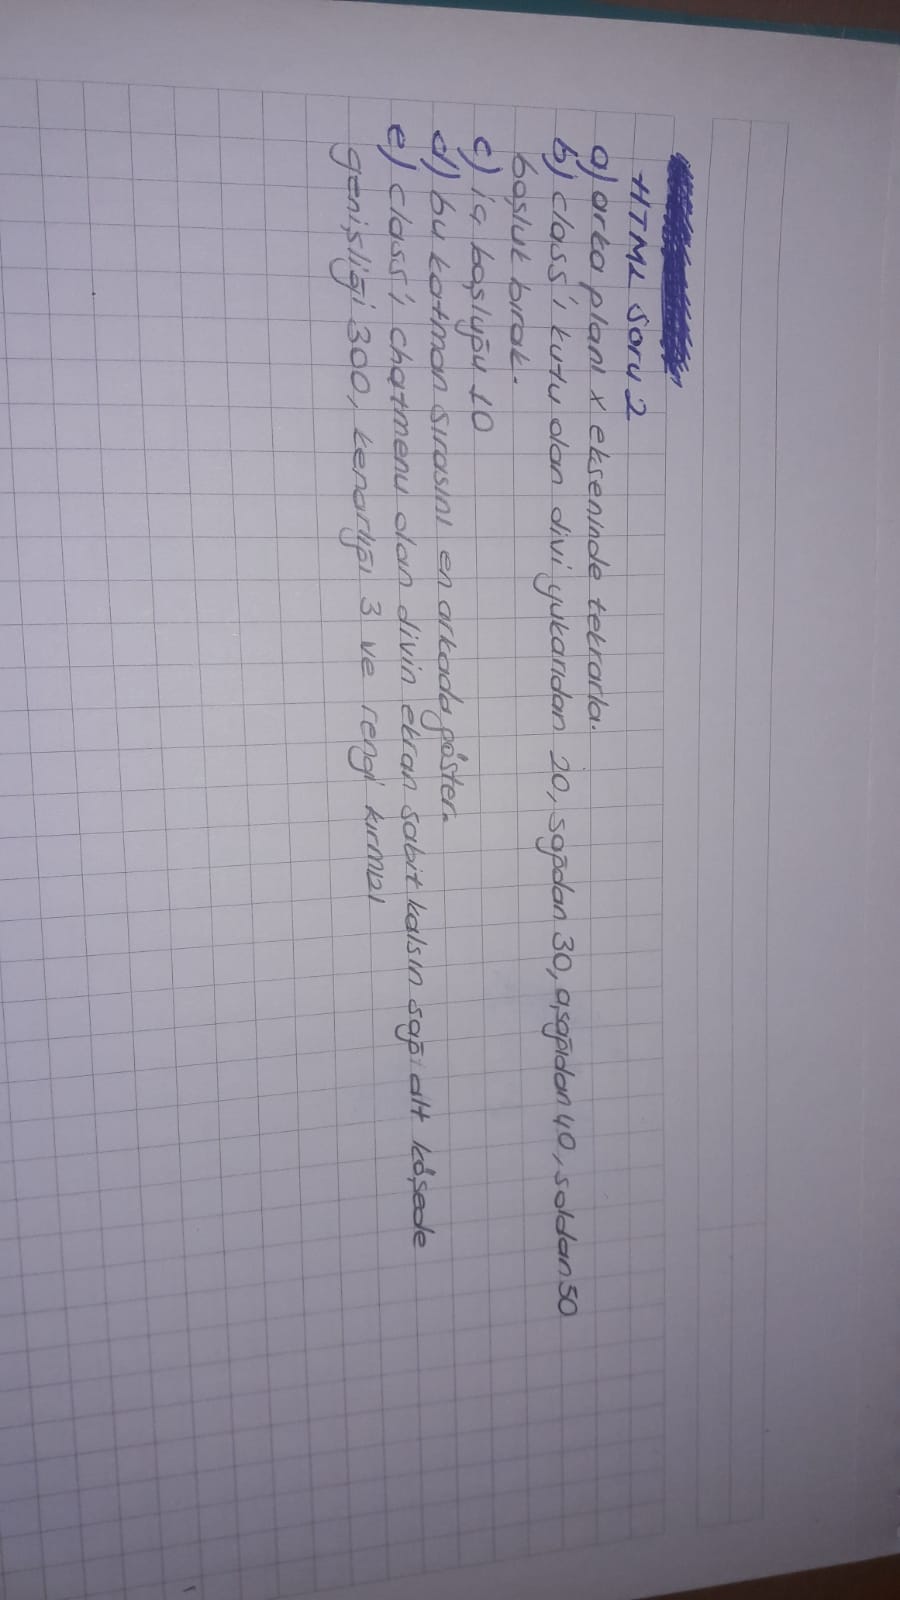 HTML Soru 2
a) arka planı x ekseninde tekrarla.
b) class'ı kutu olan divi yukarıdan 20, sağdan 30, aşağıdan 40, soldan 50
boşluk bırak.
c) iç boşluğu 10
d) bu katman sırasını en arkada göster.
e) class'ı chatmenu olan divin ekran sabit kalsın sağ alt köşede
genişliği 300, kenarlığı 3 ve rengi kırmızı